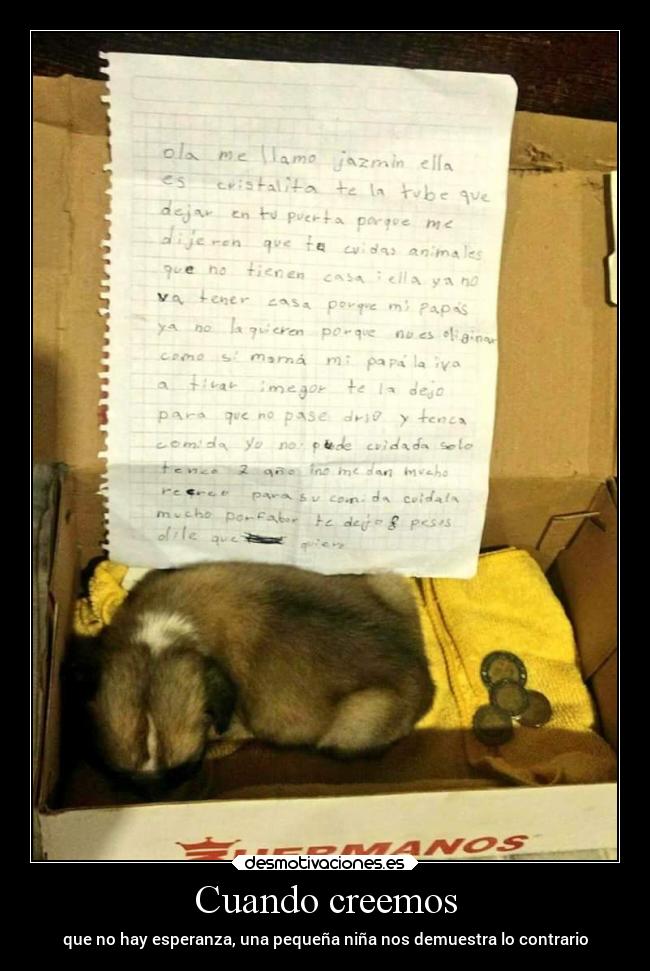 ola me llamo jazmin ella
es cristalita te la tube que
dejar en tu puerta porque me
dijeron que te cuidas animales
que no tienen casa i ella ya no
va tener casa porque mi papás
ya no la quieren porque no es
como si mamá mi papá la iva
a tirar i megor te la dejo
para que no pase y tenca
comida yo no cuidada solo
tenco 2 año i no me dan mucho
recreo para su comida cuidala
mucho porfabor te dejo 8 pesos
dile que quiero
HERMANOS
desmotivaciones.es
Cuando creemos
que no hay esperanza, una pequeña niña nos demuestra lo contrario